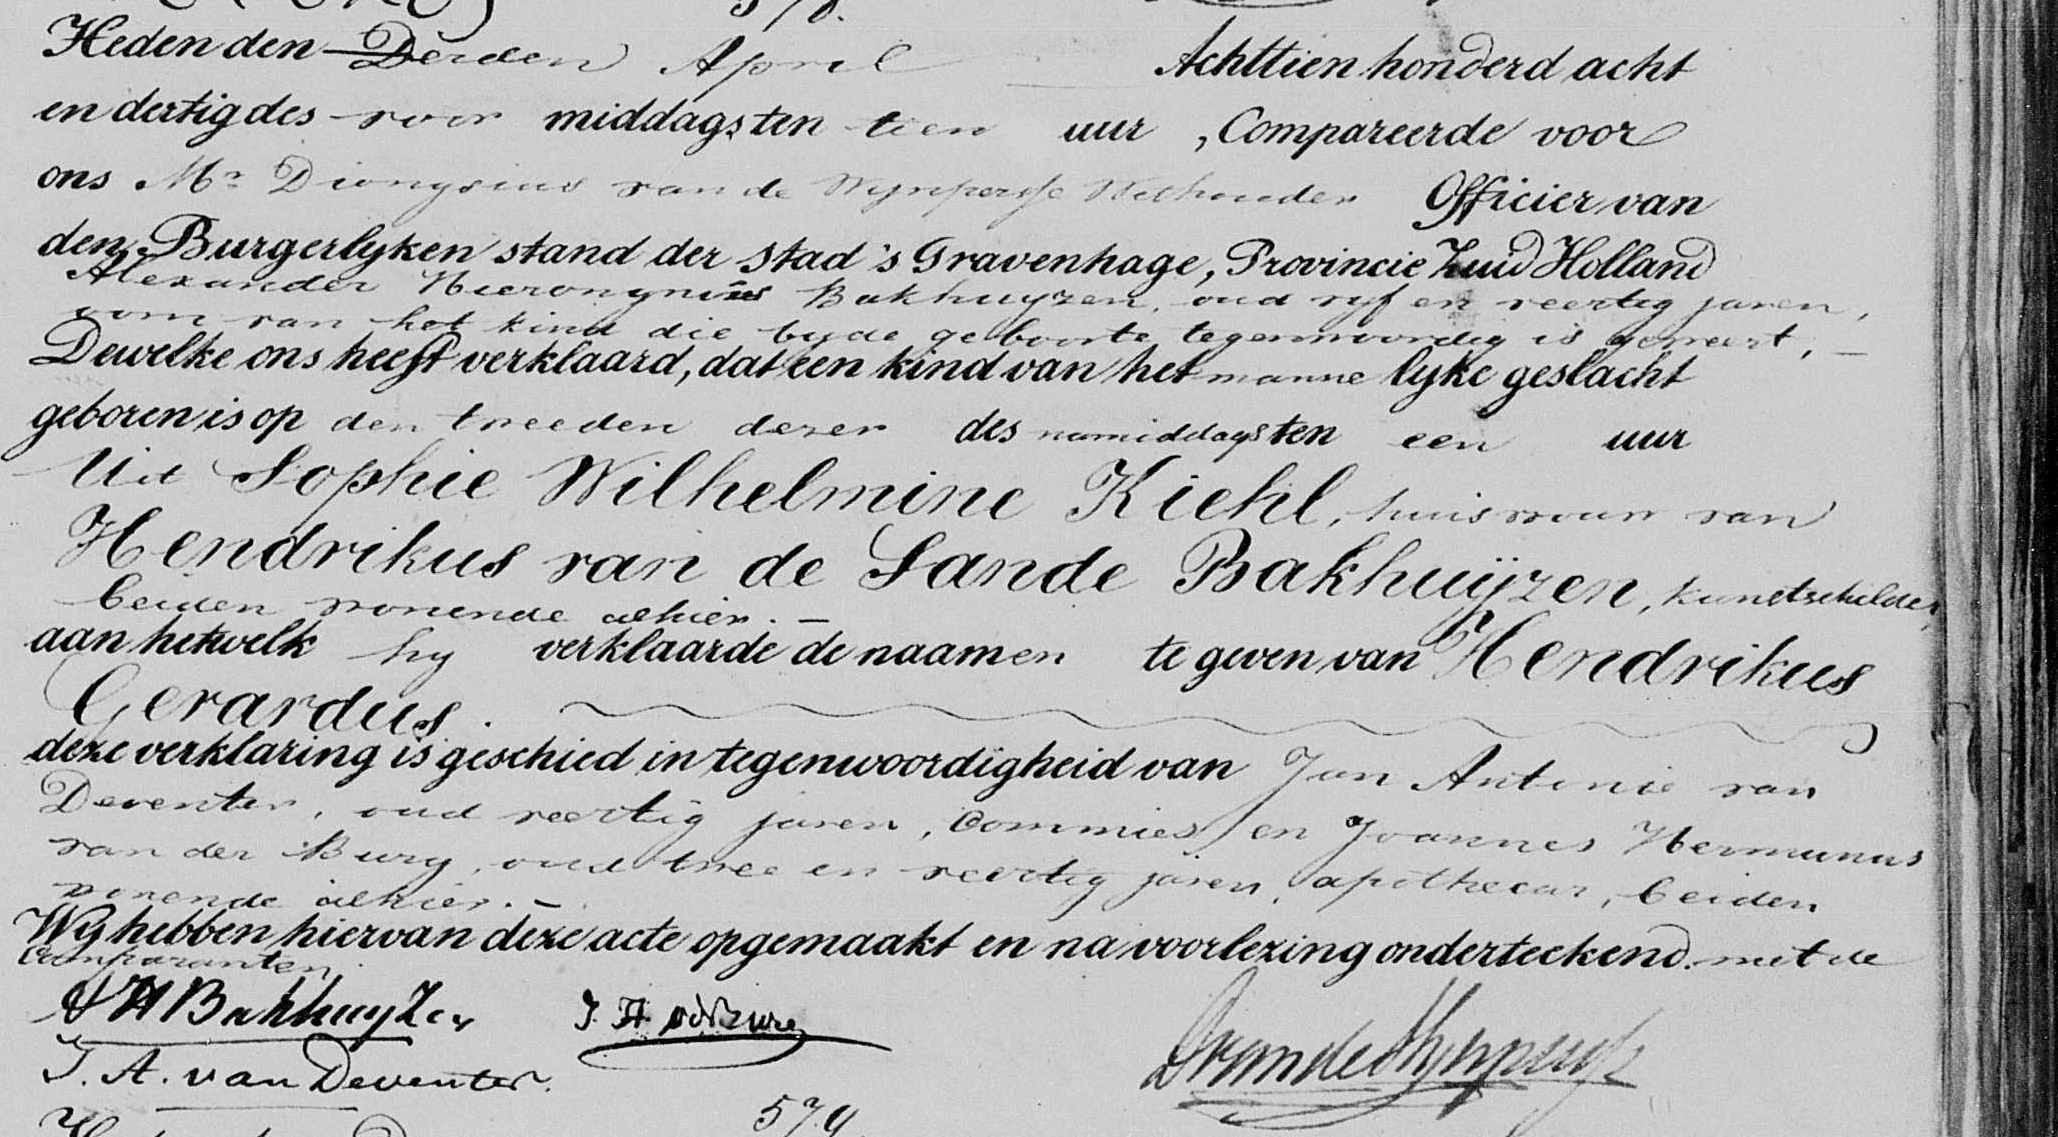 578.
Heden den Derden April Achttien honderd acht
en dertig des voor middags ten tien uur , Compareerde voor
ons Mr Dionysius van de Wynpersse Wethouder Officier van
den Burgerlyken stand der stad 's Gravenhage, Provincie Zuid Holland
Alexander Hieronymus Bakhuyzen, oud vyf en veertig jaren,
oom van het kind die byde geboorte tegenwoordig is geweest, –
Dewelke ons heeft verklaard, dat een kind van het manne lyke geslacht
geboren is op den tweeden dezer des namiddags ten een uur
Uit Sophie Wilhelmine Kiehl, huisvrouw van
Hendrikus van de Sande Bakhuÿzen, kunstschilder,
beiden wonende alhier. –
aan hetwelk hy verklaarde de naamen te geven van Hendrikus
Gerardus.
deze verklaring is geschied in tegenwoordigheid van Jan Antonie van
Deventer, oud veertig jaren, Commies en Joannes Hermanus
van der Burg, oud twee en veertig jaren, apothecar, beiden
wonende alhier. –
Wy hebben hiervan deze acte opgemaakt en na voorlezing onderteekend. met de
Comparanten.
A H Bakhuyzen J. H. vd Burg
J. A. van Deventer. D van de Wynpersse
579.